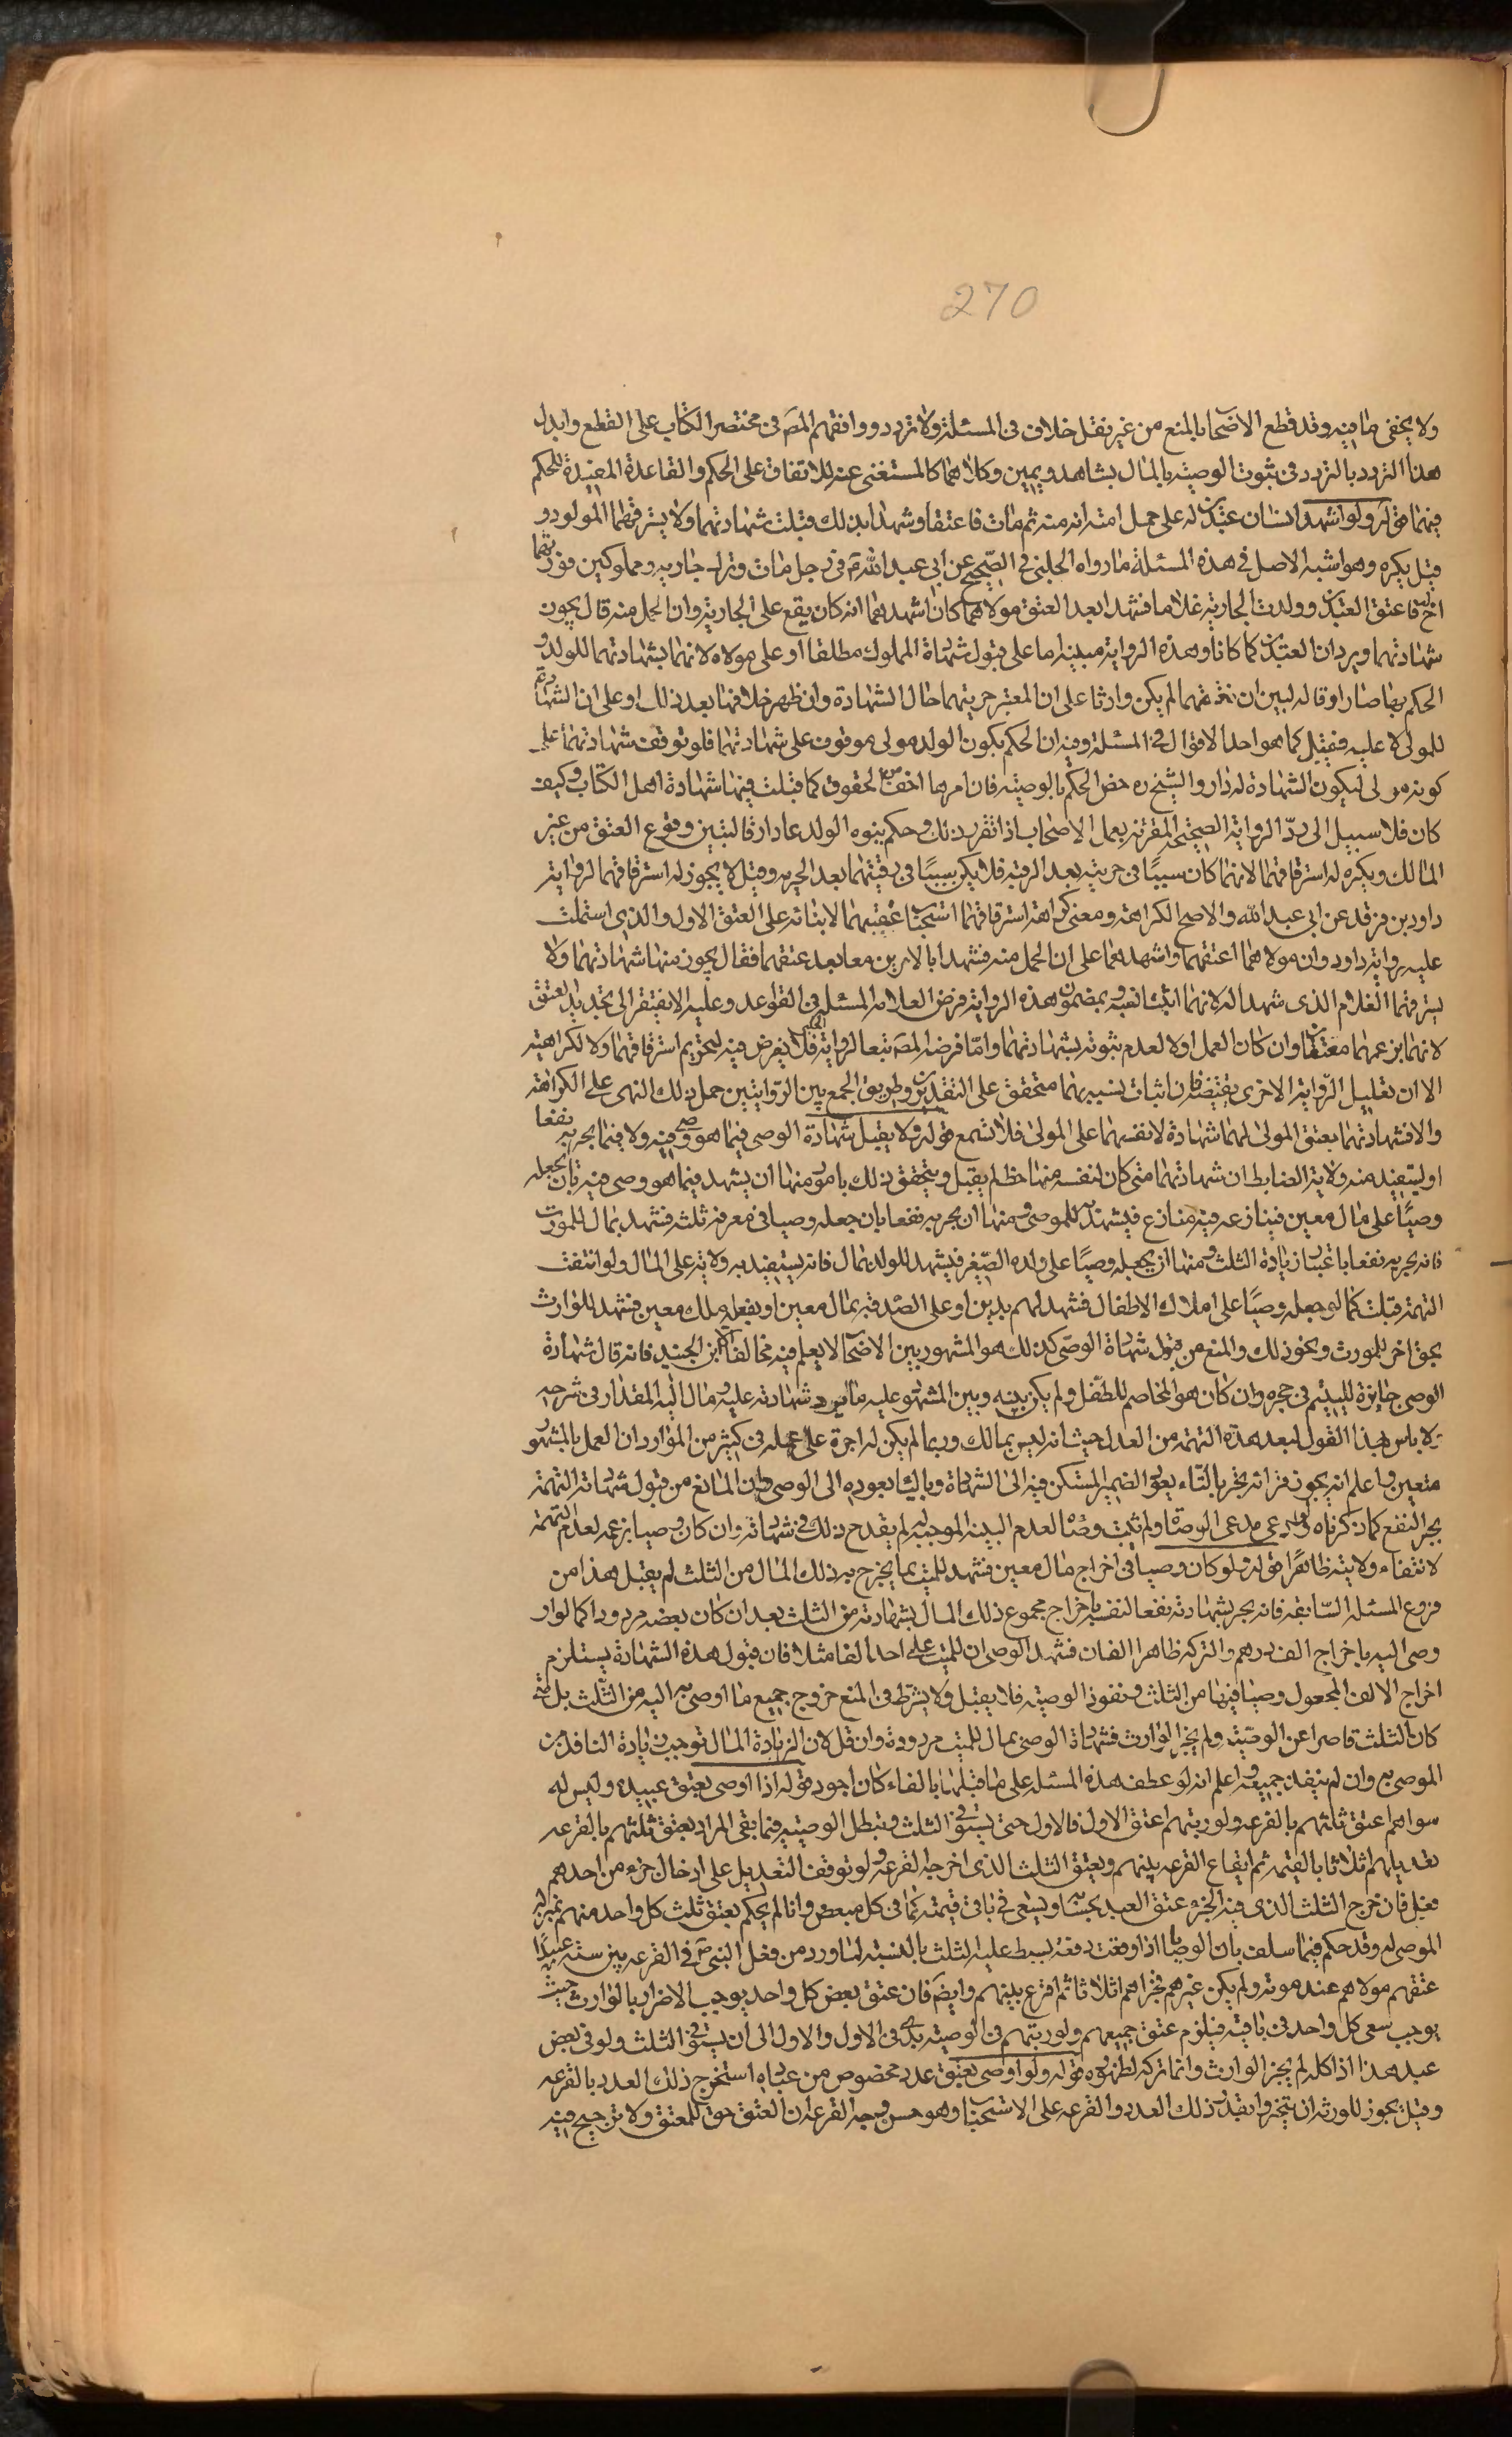 270
ولا يخفى ما فيه وقد قطع الاصحاب بالمنع من غير نقل خلاف فى المسئلة ولا تردد ووافقهم المصَ فى مختصر الكتاب على القطع وابدل
هذا التردد بالتردد فى ثبوت الوصيّة بالمال بشاهد ويمين وكلاهما كالمستغنى عنه للاتفاق على الحكم والقاعدة المفيدة للحكم
فيهما قوله ولو اشهد انسان عبدين له على حمل امته انه منه ثم مات فاعتقا وشهدا بذلك قبلت شهادتهما ولا يسترقهما المولود و
قيل يكره وهو اشبه الاصل فى هذه المسئلة ما رواه الحلبى فى الصّحيح عن ابى عبد اللهَ فى رجل مات وترك جاريه ومملوكين فورثهما
اخ له فاعتق العبدين وولدت الجارية غلاما فشهدا بعد العتق مولاهما كان اشهدهما انه كان يقع على الجارية وان الحمل منه قال يجوز
شهادتهما ويردان العبدين كما كانا وهذه الرواية مبنية اما على قبول شهادة المملوك مطلقا او على مولاه لانهما بشهادتهما للولد و
الحكم بها صارا وقا له لبين ان معتقهما لم يكن وارثا على ان المعتبر حريتهما حال الشهادة وان ظهر خلافها بعد ذلك او على ان الشهادة
للمولى لا عليه فتقبل كما هو احد الاقوال فى المسئلة وفيه ان الحكم بكون الولد مولى موقوف على شهادتهما فلو توقف شهادتهما على
كونه مولى ليكون الشهادة له دار والشيخ ره خص الحكم بالوصية فان امرها اخف من الحقوق كما قبلت فيها شهادة اهل الكتاب وكيف
كان فلا سبيل الى ردّ الرواية الصحيحة المقترنة بعمل الاصحاب اذا تقرر ذلك وحكم ببنوه الولد عادا رقا لتبين وقوع العتق من غير
المالك ويكره له استرقاقهما لانهما كان سببًا فى حريته بعد الرقية فلا يكن سببًا فى رقيتهما بعد الحريه وقيل لا يجوز له استرقاقهما لرواية
داود بن فرقد عن ابى عبد الله والاصح الكراهة ومعنى كراهة استرقاقهما استحباب عتقهما لابنائه على العتق الاول والذى اشتملت
عليه رواية داود وان مولاهما اعتقهما واشهدهما على ان الحمل منه فشهدا بالامرين معا بعد عتقهما فقال يجوز منها شهادتهما ولا
يسترقهما الغلام الذى شهدا له لانهما اثبتا نسبه وبمضمون هذه الرواية فرض العلامه المسئله فى القواعد وعليه لا يفتقر الى تجديد العتق
لانهما بزعمهما معتقان وان كان العمل اولا لعدم ثبوته بشهادتهما وامّا فرضه المصَ تبعا لرواية فلا يفرض فيه لتحريم استرقاقهما ولا لكراهته
الا ان تعليل الرّواية الاخرى يقتضيه لان اثبات نسبه بهما متحقق على التقديرين وطريق الجمع بين الرّوايتين حمل ذلك النهى على الكراهة
والا فشهادتهما بعتق المولى لهما شهادة لانفسهما على المولى فلا تسمع قوله ولا يقبل شهادة الوصى فيما هو وصى فيه ولا فيما يجر به نفعا
او ليستفيد منه ولاية الضابط ان شهادتهما متى كان لنفسه منها حظ لم يقبل ويتحقق ذلك بامور منها ان يشهد فيما هو وصى فيه بان يجعله
وصيًّا على مال معين فينازعه فيه منازع فيشهد به للموصى ومنها ان يجر به نفعا بان جعله وصيا فى معرفة ثلثه فشهد بمال للمورث
فانه يجر به نفعا باعتبار زيادة الثلث ومنها ان يجعله وصيًّا على ولده الصّغير فيشهد للولد بمال فانه يستفيد به ولاية على المال ولو انتفت
التهمة قبلت كما لو جعله وصيًّا على املاك الاطفال فشهد لهم بدين او على الصّدقة بمال معين او يفعله بملك معين فشهد للوارث
بحق اخر للمورث ونحو ذلك والمنع من قبول شهادة الوصى كذلك هو المشهور بين الاصحاب لا يعلم فيه مخالفا الا ابن الجنيد فانه قال شهادة
الوصى جايزة لليتيم فى حجره وان كان هو المخاصم للطّفل ولم يكن بينه وبين المشهود عليه ما يرد شهادته عليه ومال اليه المقداد فى شرحه
ولا باس بهذا القول لبعد هذه التهمة من العدل حيث انه ليس بمالك وربما لم يكن له اجرة على عمله فى كثير من الموارد ان العمل بالمشهور
متعين واعلم انه يجوز قرائة يجر بالتّاء يعود الضمير المستكن فيه الى الشهادة وبالياء يعود به الى الوصى وان المانع من قبول شهادته التهمة
بجر النفع كما ذكرناه فلو ادعى مدعى الوصاة ولم يثبت وصاه لعدم البينه الموجبه له لم يقدح ذلك فى شهادته وان كان وصيا بزعمه لعدم التهمة
لانتفاء ولايته ظاهرًا قوله ولو كان وصيا فى اخراج مال معين فشهد للميت بما يخرج به ذلك المال من الثلث لم يقبل هذا من
فروع المسئله السّابقه فانه يجر بشهادته نفعا لنفسه باخراج مجموع ذلك المال بشهادته من الثلث بعد ان كان بعضه مردودا كما لو ار
وصى اليه باخراج الف درهم والتركه ظاهرا الفان فشهد الوصى ان للميت على احد الفا مثلا فان قبول هذه الشهادة يستلزم
اخراج الالف المجعول وصيا فيها من الثلث ونفوذ الوصيّة فلا يقبل ولا يشترط فى المنع خروج جميع ما اوصى به اليه من الثلث بل متى
كان الثلث قاصرا عن الوصيّة ولم يجز الوارث فشهادة الوصى بمال للميت مردودة وان قل لان الزيادة المال توجب زيادة النافذ من
الموصى به وان لم ينفذ جميعه واعلم انه لو عطف هذه المسئله على ما قبلها بالفاء كان اجود قوله اذا اوصى بعتق عبيده وليس له
سواهم اعتق ثلثهم بالقرعه ولو رتبهم اعتق الاول فالاول حتى يستوفى الثلث وتبطل الوصيّه فيما بقى المراد بعتق ثلثهم بالقرعه
تعديلهم اثلاثا بالقيمة ثم ايقاع القرعه بينهم ويعتق الثلث الذى اخرجه القرعه ولو توقف التعديل على ادخال جزء من احدهم
فعل فان خرج الثلث الذى فيه الجزء عتق العبد بحسابه ويسعى فى باقى قيمته كما فى كل مبعض وانما لم يحكم بعتق ثلث كل واحد منهم
الموصى له وقد حكم فيما سلف بان الوصايا اذا وقعت دفعة يبسط عليها الثلث بالنسبة لما ورد من فعل النبىَ فى القرعه بين ستة عبيدًا
عتقهم مولاهم عند موته ولم يكن غيرهم فجزاهم اثلاثا ثم اقرع بينهم وايضَ فان عتق بعض كل واحد يوجب الاضرار بالوارث حيث
يوجب سعى كل واحد فى باقيه فيلزم عتق جميعهم ولو رتبهم فى الوصيّه بدئ فى الاول والاول الى ان يستوفى الثلث ولو فى بعض
عبد هذا اذا كله لم يجز الوارث وانما تركه لظهوره قوله ولو اوصى بعتق عدد مخصوص من عباده استخرج ذلك العدد بالقرعه
وقيل يجوز للورثه ان يتخيروا بقدر ذلك العدد والقرعه على الاستحباب وهو حسن وجه القرعه ان العتق حق للمعتق ولا ترجيح فيه